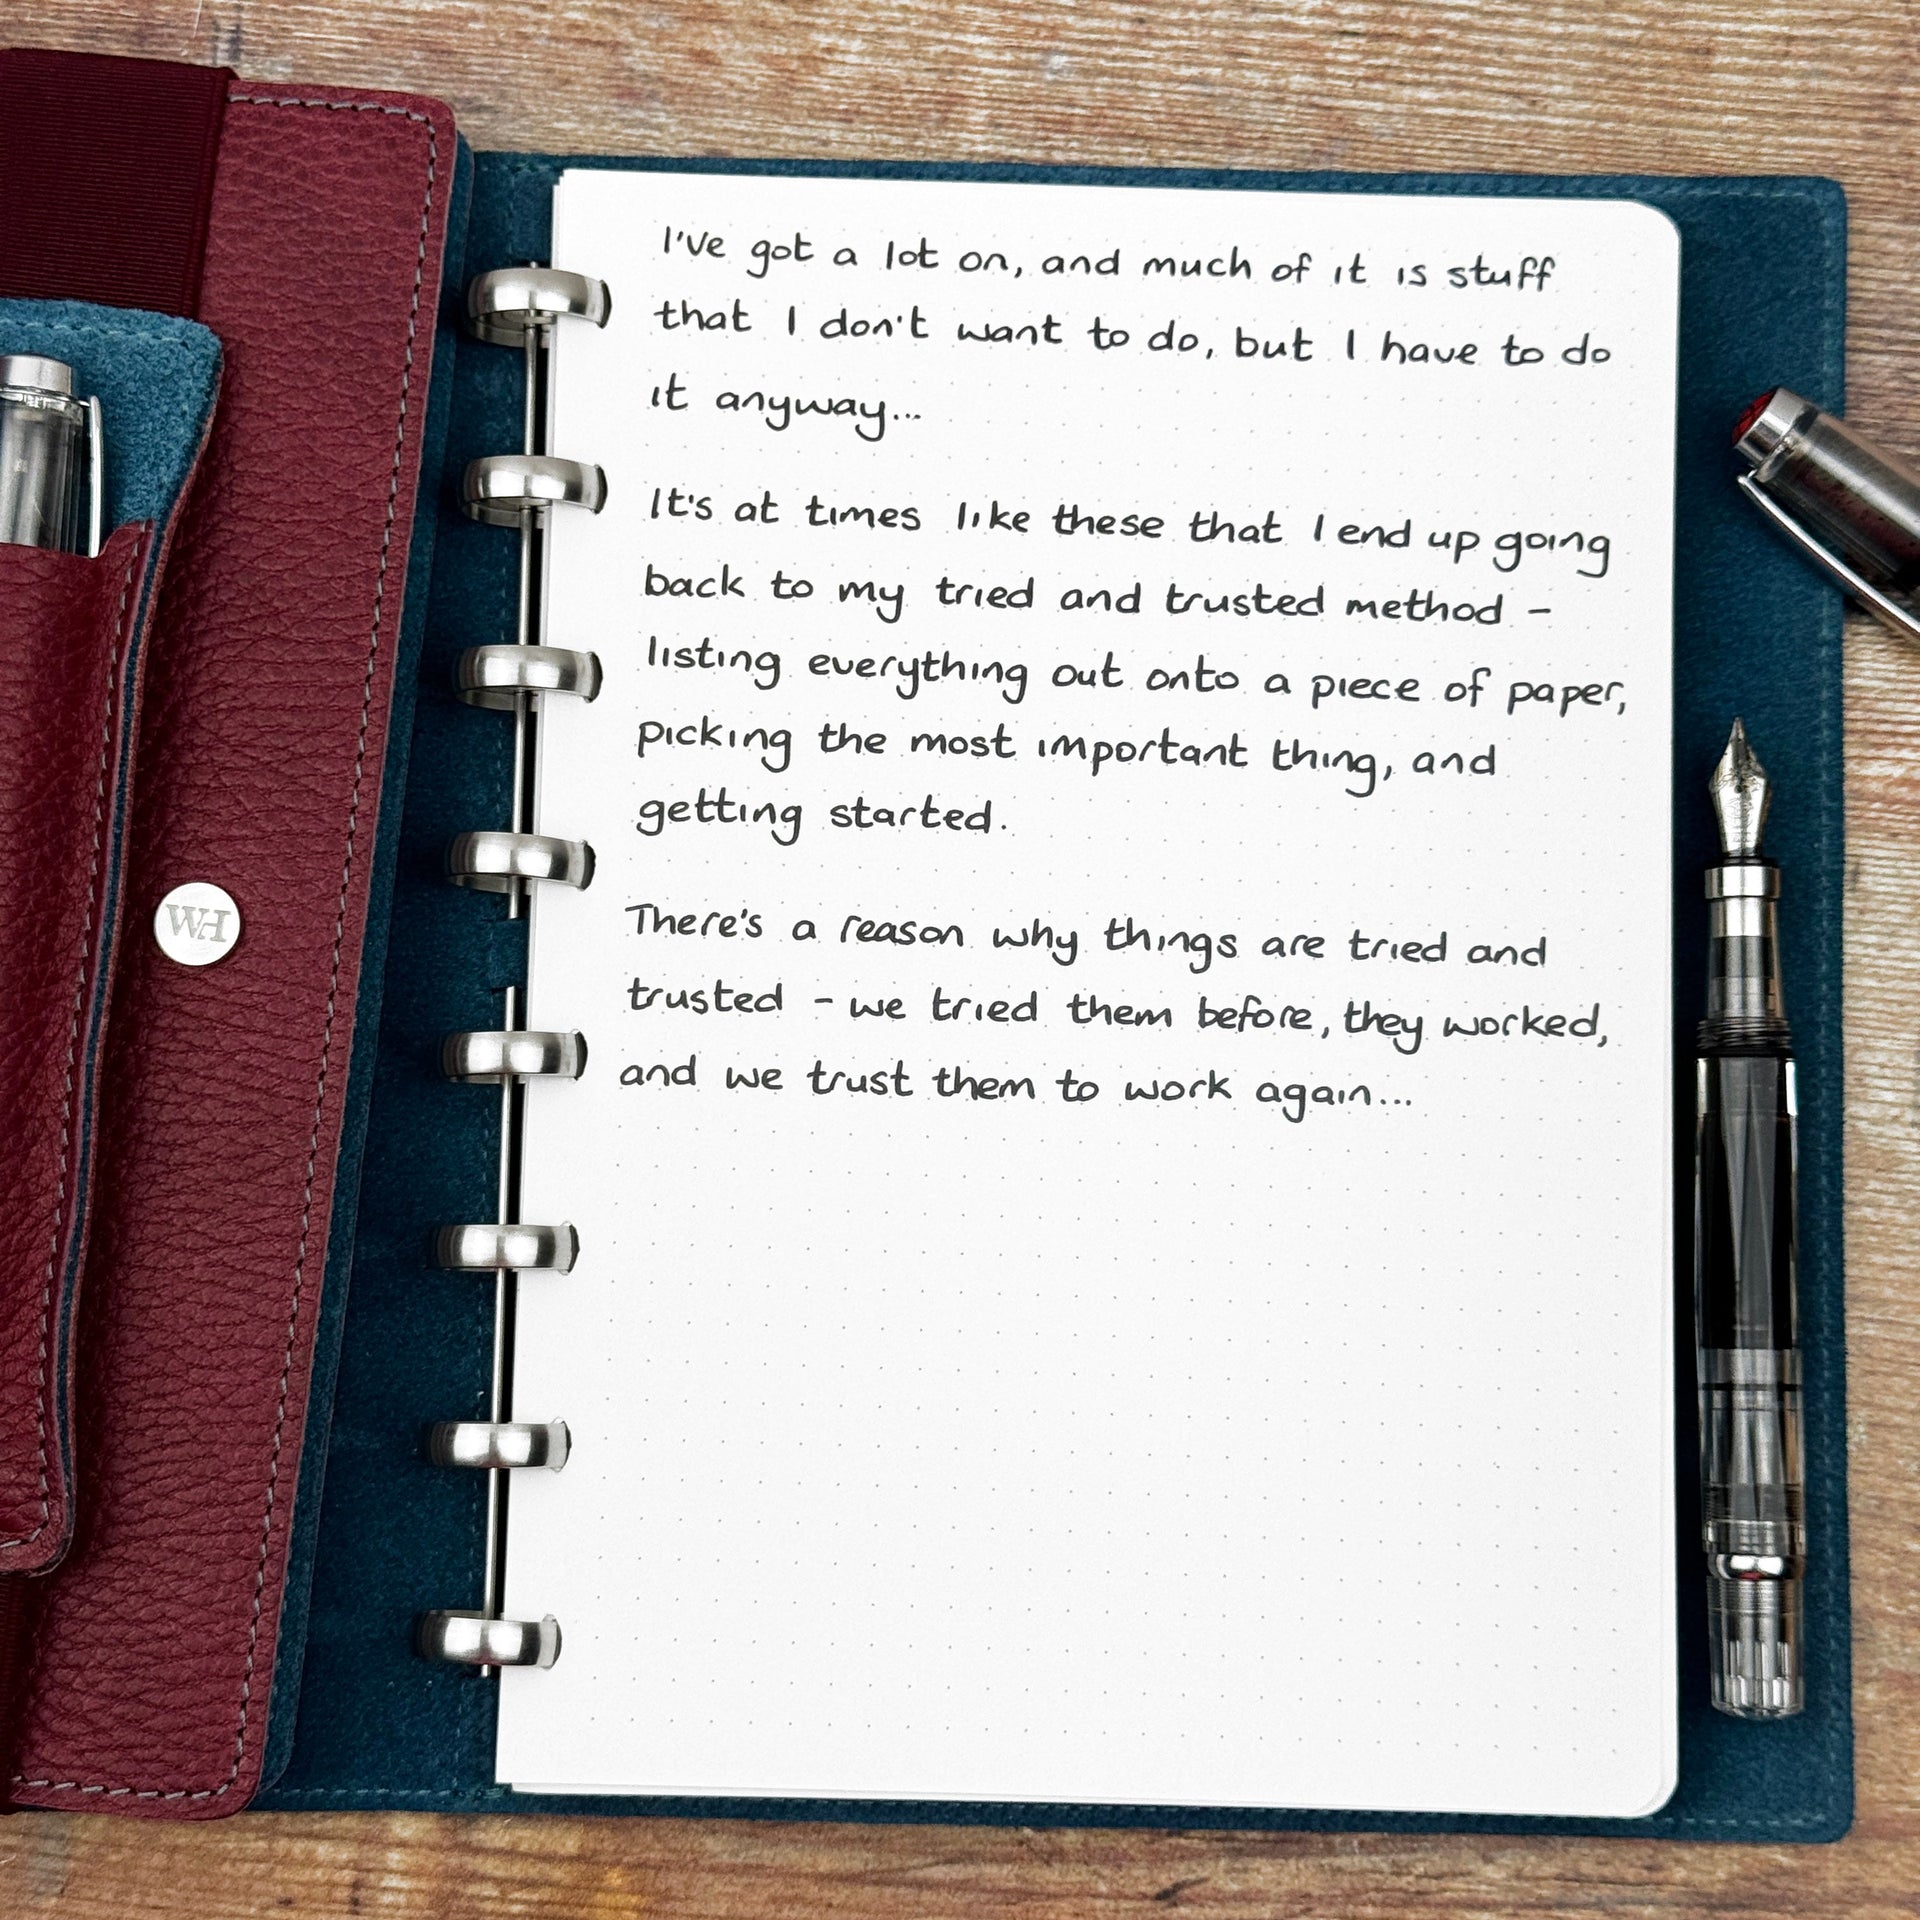 I've got a lot on, and much of it is stuff
that I don't want to do, but I have to do
it anyway...
It's at times like these that I end up going
back to my tried and trusted method -
listing everything out onto a piece of paper,
picking the most important thing, and
getting started.
There's a reason why things are tried and
trusted - we tried them before, they worked,
and we trust them to work again...
WH